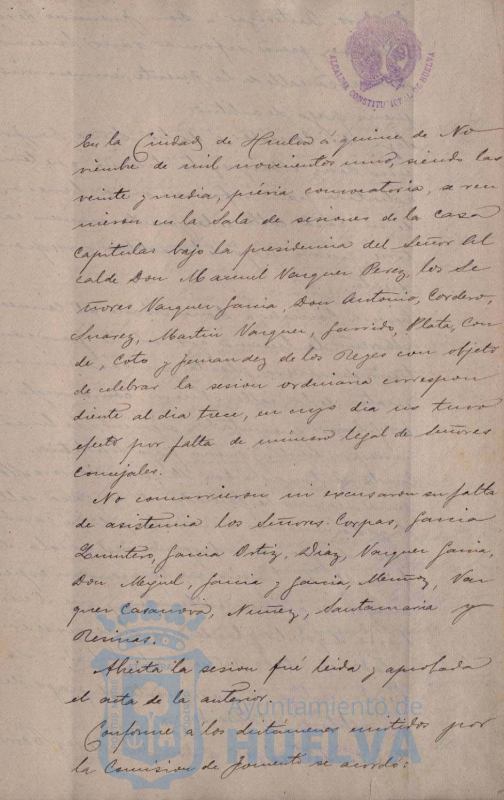 ALCALDIA CONSTITUCIONAL DE HUELVA
En la Ciudad de Huelva á quince de No
viembre de mil novecientos uno, siendo las
veinte y media, prévia convocatoria, se reu
nieron en la Sala de sesiones de la casa
capitular bajo la presidencia del Señor Al
calde Don Manuel Vazquez Perez, los Se
ñores Vazquez Garcia, Don Antonio, Cordero,
Suarez, Martin Vazquez, Garrido, Plata, Con
de, Coto y Fernandez de los Reyes con objeto
de celebrar la sesion ordinaria correspon
diente al dia trece, en cuyo dia no tuvo
efecto por falta de número legal de Señores
Concejales.
No concurrieron ni excusaron su falta
de asistencia los Señores Corpas, Garcia
Quintero, Garcia Ortiz, Diaz, Vazquez Garcia,
Don Miguel, Garcia y Garcia, Muñoz, Vaz
quez Casanova, Nuñez, Santamaria y
Resinas.
Abierta la sesion fué leida y aprobada
el acta de la anterior.
Conforme a los dictámenes emitidos por
la Comision de Fomento se acordó:
Ayuntamiento de
HUELVA